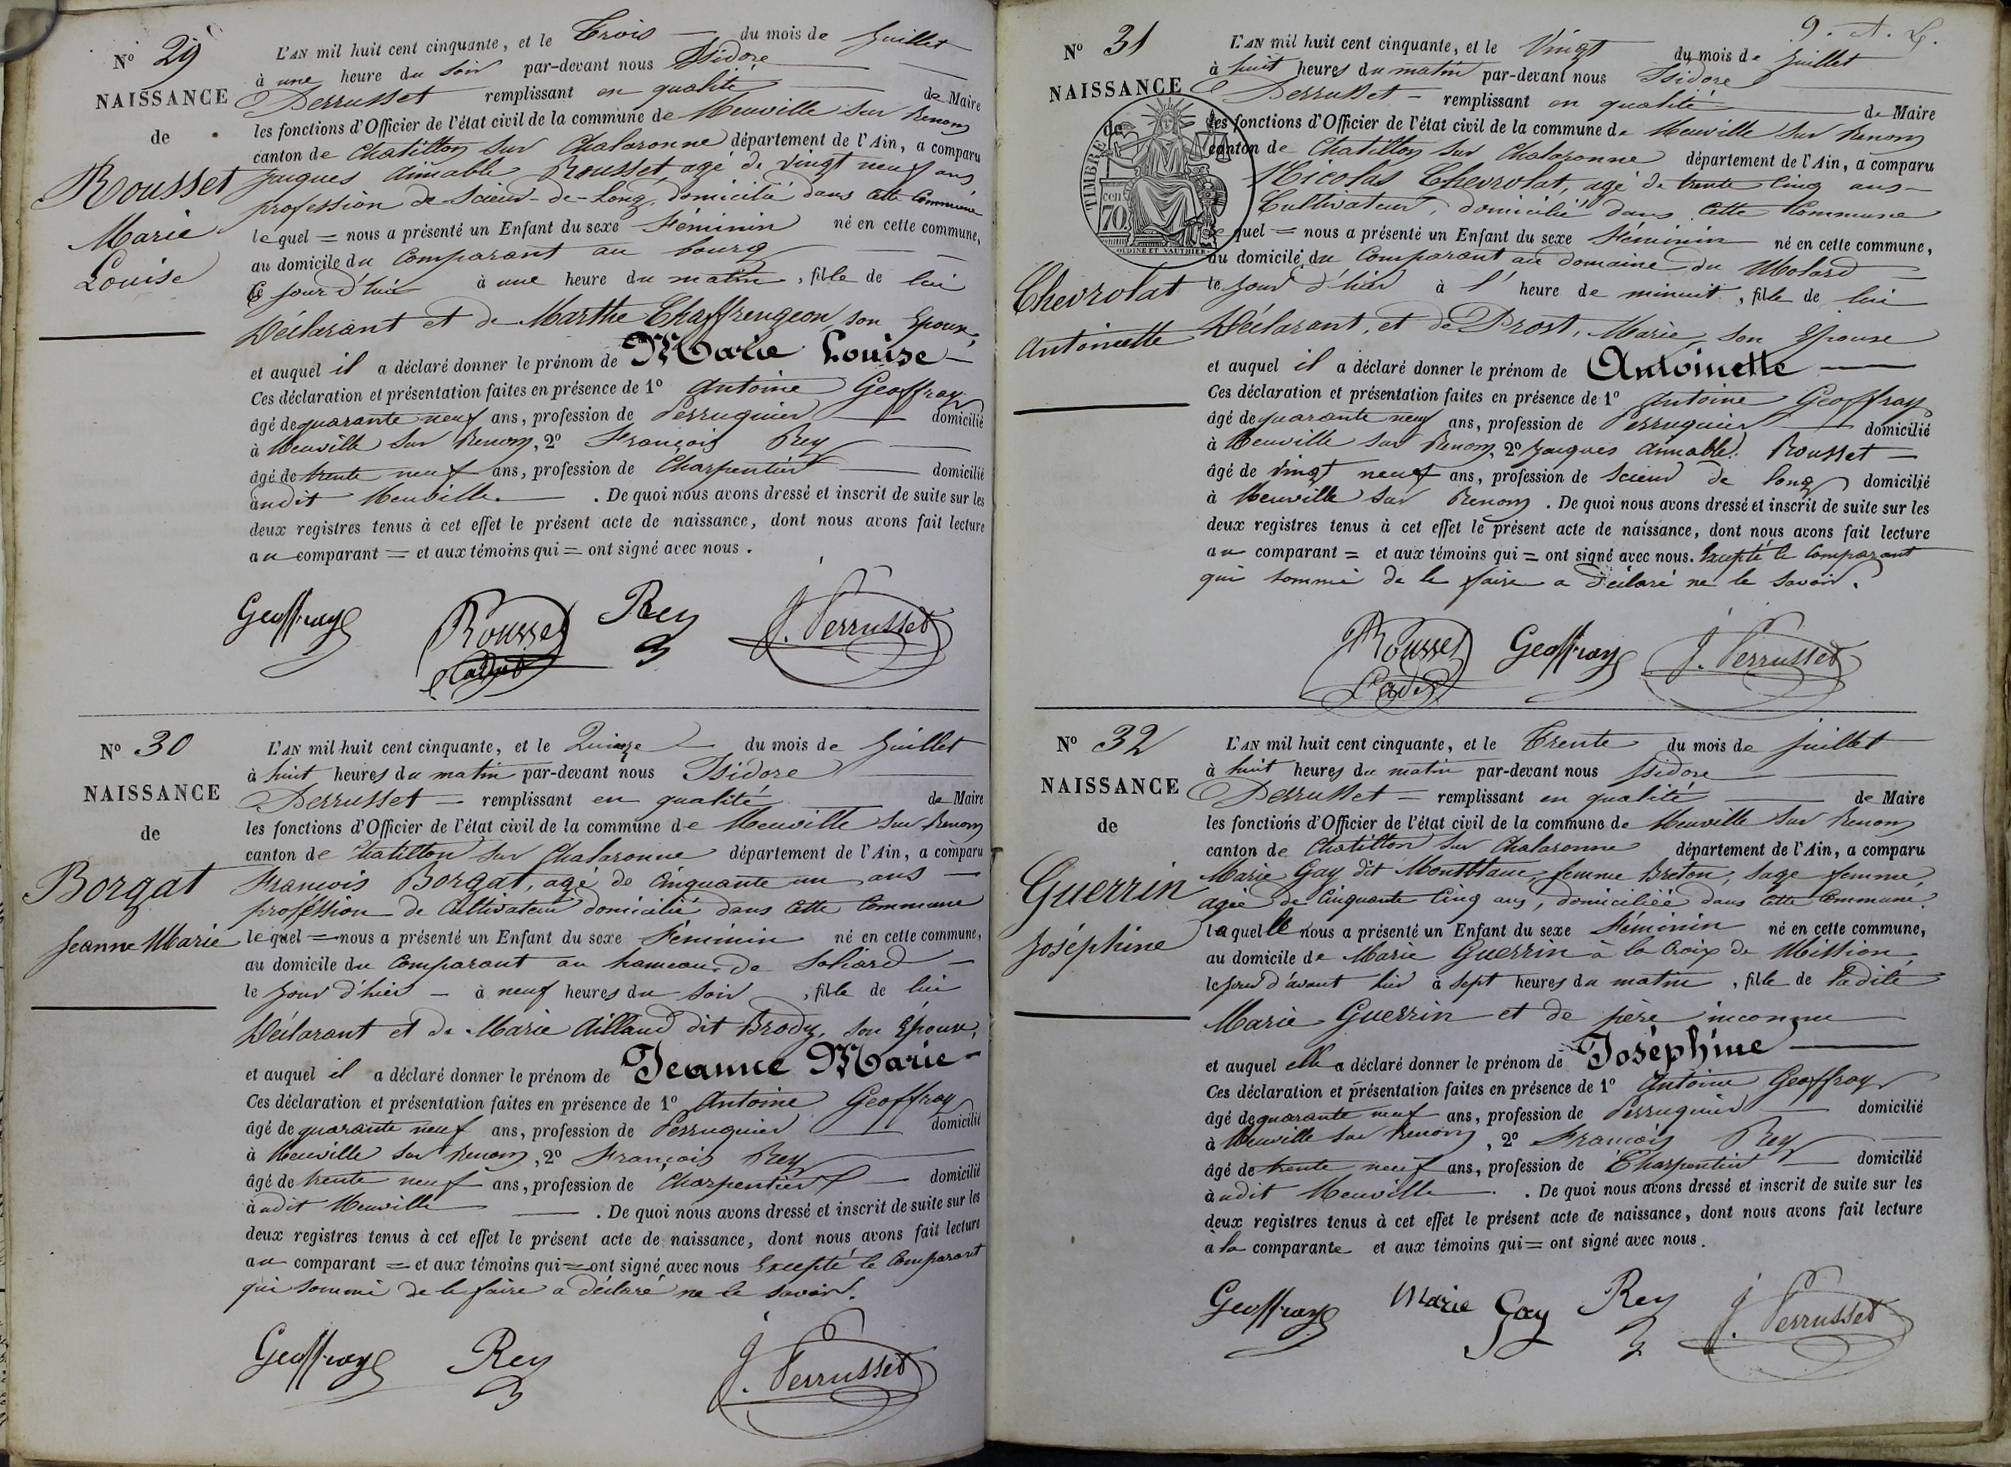 N° 29
NAISSANCE
de
Rousset
Marie
Louise
L'AN mil huit cent cinquante, et le Trois du mois de Juillet
à une heure du soir par-devant nous Isidore
Perrusset remplissant en qualité de Maire
les fonctions d'Officier de l'état civil de la commune de Neuville sur Renom
canton de Chatillon sur Chalaronne département de l'Ain, a comparu
Jacques Aimable Rousset, agé de vingt neuf ans
profession de Scieur-de-Long, domicilié dans cette Commune
lequel = nous a présenté un Enfant du sexe Féminin né en cette commune,
au domicile du Comparant au bourg
Ce jour d'hui à une heure du matin, fille de lui
Déclarant et de Marthe Chaffrengeon, son Epouse,
et auquel il a déclaré donner le prénom de Marie Louise
Ces déclaration et présentation faites en présence de 1° Antoine Geoffray
âgé de quarante neuf ans, profession de Perruquier domicilié
à Neuville sur Renom, 2° François Rey
âgé de trente neuf ans, profession de Charpentier domicilié
audit Neuville. De quoi nous avons dressé et inscrit de suite sur les
deux registres tenus à cet effet le présent acte de naissance, dont nous avons fait lecture
au comparant = et aux témoins qui = ont signé avec nous.
Geoffray Rousset Cadet Rey J. Perrusset
N° 30
NAISSANCE
de
Borgat
Jeanne Marie
L'AN mil huit cent cinquante, et le Quinze du mois de Juillet
à huit heures du matin par-devant nous Isidore
Perrusset remplissant en qualité de Maire
les fonctions d'Officier de l'état civil de la commune de Neuville sur Renom
canton de Chatillon sur Chalaronne département de l'Ain, a comparu
François Borgat, agé de Cinquante un ans
profession de Cultivateur domicilié dans cette Commune
lequel = nous a présenté un Enfant du sexe Féminin né en cette commune,
au domicile du Comparant au hameau de
le jour d'hier à neuf heures du soir, fille de lui
Déclarant et de Marie Aillaud dit Brody, son Epouse,
et auquel il a déclaré donner le prénom de Jeanne Marie
Ces déclaration et présentation faites en présence de 1° Antoine Geoffray
âgé de quarante neuf ans, profession de Perruquier domicilié
à Neuville sur Renom, 2° François Rey
âgé de trente neuf ans, profession de Charpentier domicilié
audit Neuville. De quoi nous avons dressé et inscrit de suite sur les
deux registres tenus à cet effet le présent acte de naissance, dont nous avons fait lecture
au comparant = et aux témoins qui = ont signé avec nous Excepté le Comparant
qui sommé de le faire a déclaré ne le savoir.
Geoffray Rey J. Perrusset
9. A. L.
N° 31
NAISSANCE
de
TIMBRE
cen 70
OUDINE ET VAUTHIER
Chevrolat
Antoinette
L'AN mil huit cent cinquante, et le Vingt du mois de Juillet
à huit heures du matin par-devant nous Isidore
Perrusset remplissant en qualité de Maire
les fonctions d'Officier de l'état civil de la commune de Neuville sur Renom
canton de Chatillon sur Chalaronne département de l'Ain, a comparu
Nicolas Chevrolat, agé de trente Cinq ans
Cultivateur, domicilié dans Cette Commune
lequel = nous a présenté un Enfant du sexe Féminin né en cette commune,
au domicile du Comparant au domaine du Molard
le jour d'hier à l'heure de minuit, fille de lui
Déclarant, et de Prost, Marie, son Epouse
et auquel il a déclaré donner le prénom de Antoinette
Ces déclaration et présentation faites en présence de 1° Antoine Geoffray
âgé de quarante neuf ans, profession de Perruquier domicilié
à Neuville sur Renom, 2° Jacques Aimable Rousset
âgé de vingt neuf ans, profession de Scieur de long domicilié
à Neuville sur Renom. De quoi nous avons dressé et inscrit de suite sur les
deux registres tenus à cet effet le présent acte de naissance, dont nous avons fait lecture
au comparant = et aux témoins qui = ont signé avec nous. Excepté le Comparant
qui sommé de le faire a déclaré ne le savoir.
Rousset Cadet Geoffray J. Perrusset
N° 32
NAISSANCE
de
Guerrin
Joséphine
L'AN mil huit cent cinquante, et le Trente du mois de Juillet
à huit heures du matin par-devant nous Isidore
Perrusset remplissant en qualité de Maire
les fonctions d'Officier de l'état civil de la commune de Neuville sur Renom
canton de Chatillon sur Chalaronne département de l'Ain, a comparu
Marie Gay dit Montblanc, femme Breton, sage femme,
agée de Cinquante Cinq ans, domiciliée dans cette Commune.
laquelle nous a présenté un Enfant du sexe Féminin né en cette commune,
au domicile de Marie Guerrin à la Croix de Mission
le jour d'avant hier à sept heures du matin, fille de ladite
Marie Guerrin et de père inconnu
et auquel elle a déclaré donner le prénom de Joséphine
Ces déclaration et présentation faites en présence de 1° Antoine Geoffray
âgé de quarante neuf ans, profession de Perruquier domicilié
à Neuville sur Renom, 2° François Rey
âgé de trente neuf ans, profession de Charpentier domicilié
audit Neuville. De quoi nous avons dressé et inscrit de suite sur les
deux registres tenus à cet effet le présent acte de naissance, dont nous avons fait lecture
à la comparante et aux témoins qui = ont signé avec nous.
Geoffray Marie Gay Rey J. Perrusset